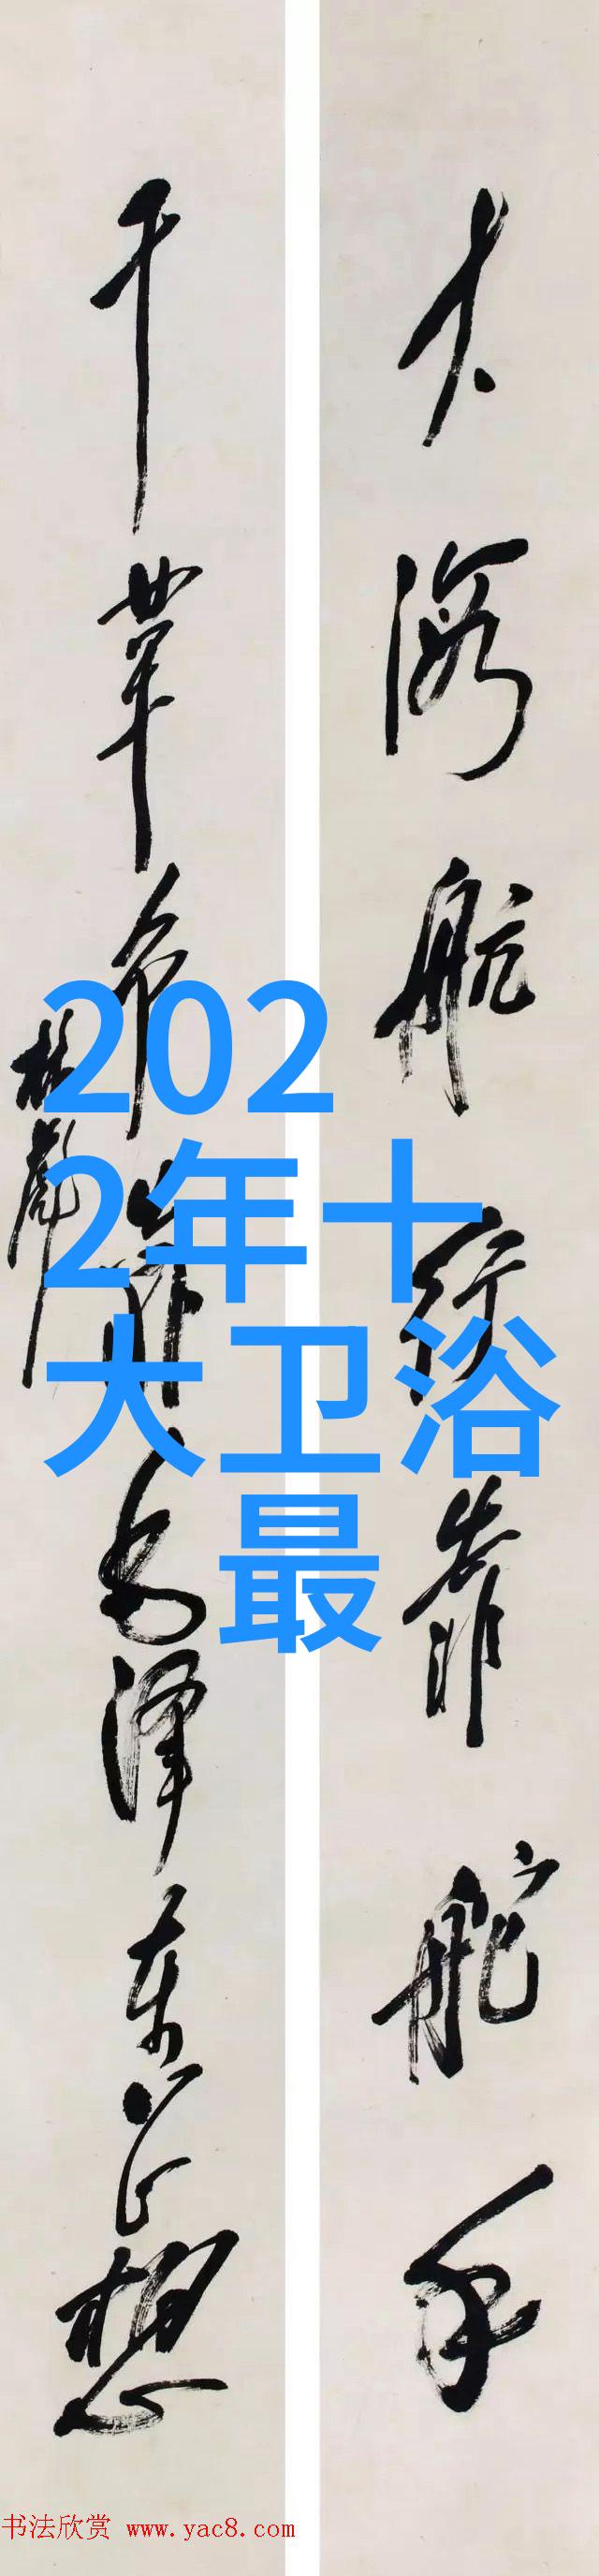 大海航行靠舵手
干革命靠毛泽东思想
林彪
202
2年十
大卫浴
最
书法欣赏 www.yac8.com